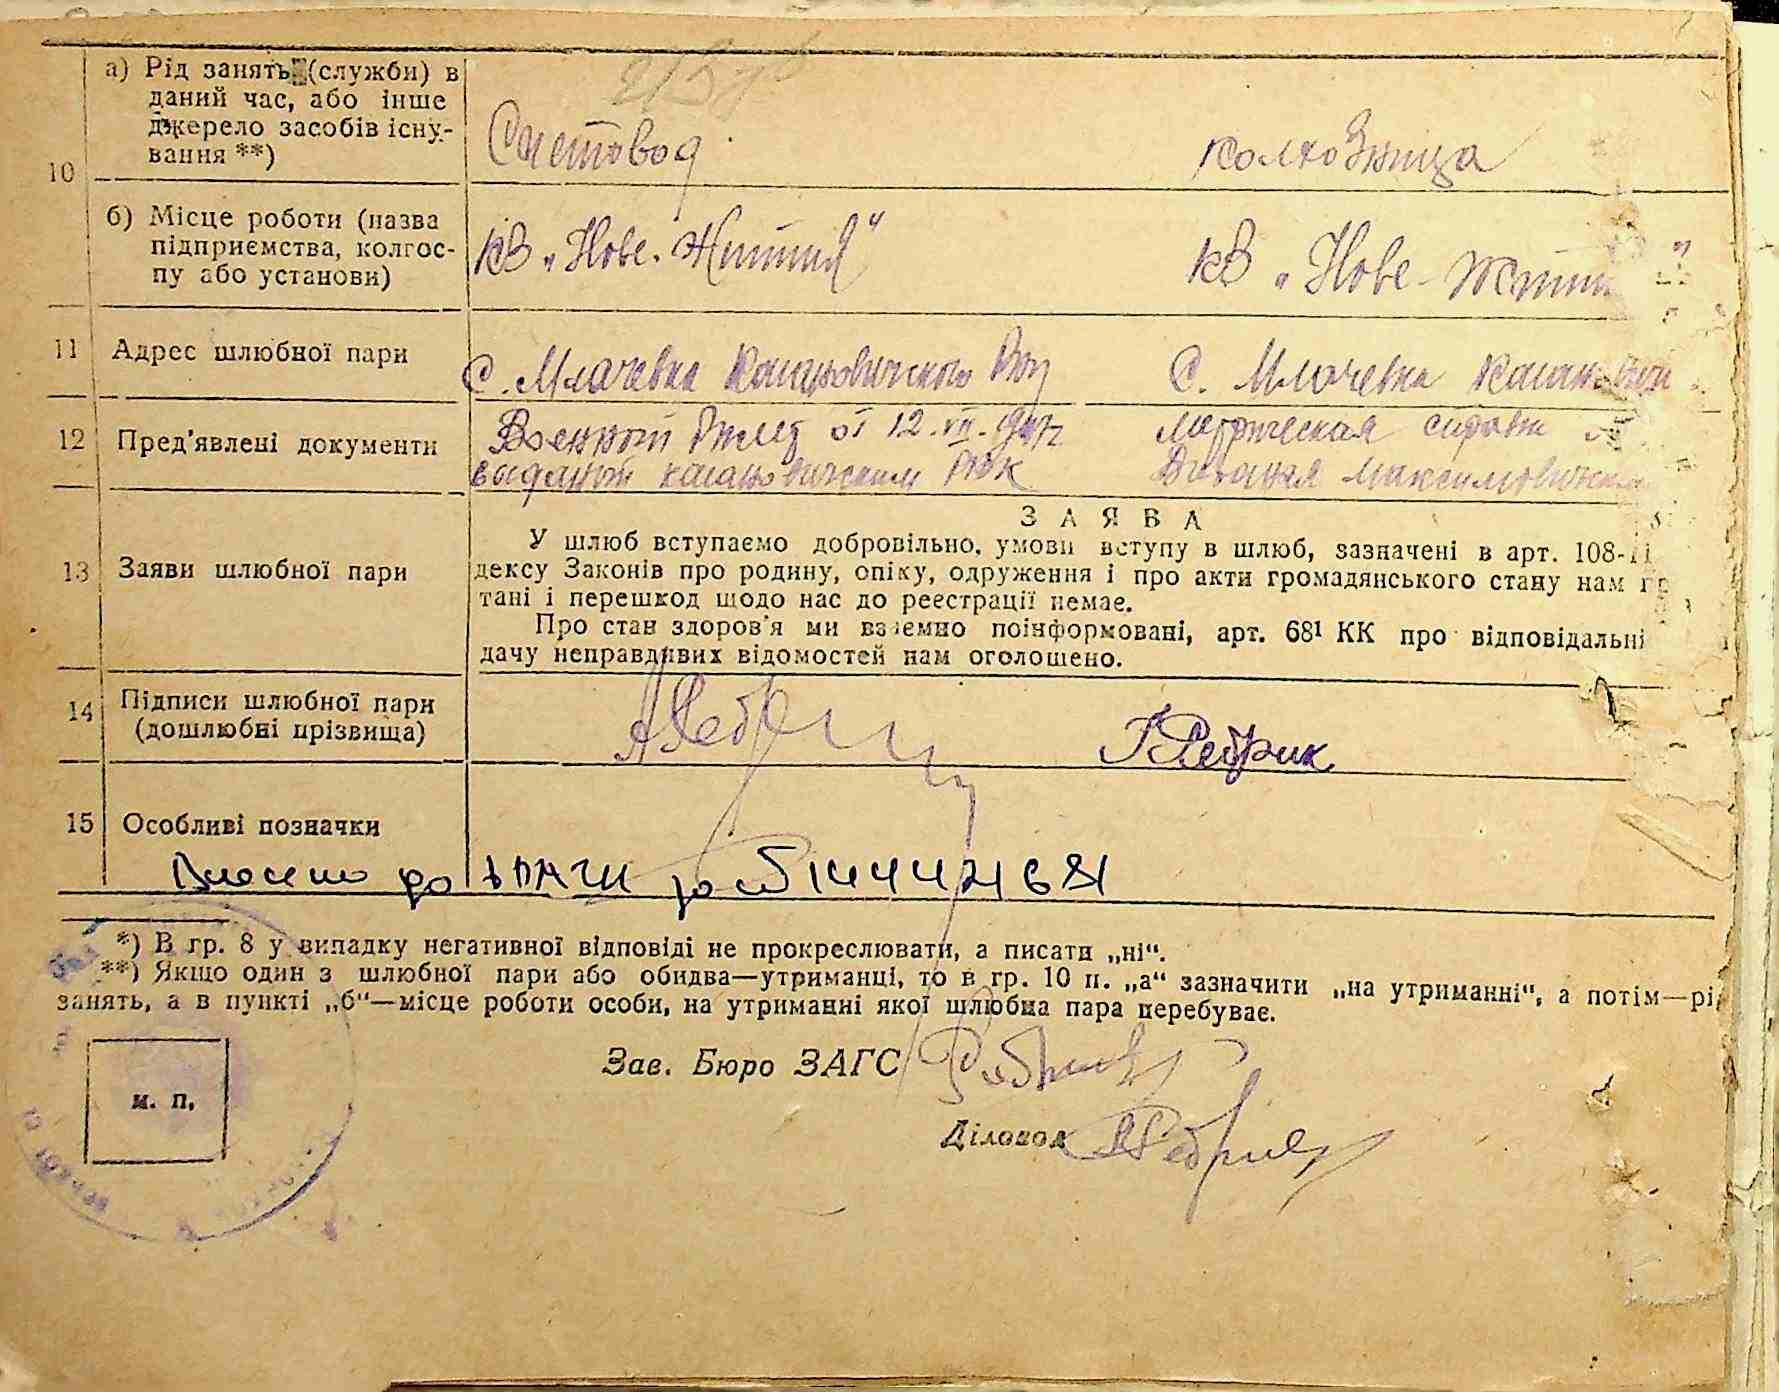 10
а) Рід занять (службИ) в
даний час, або інше
джерело засобів існу-
вання **)
Счетовод
колхозница
б) Місце роботи (назва
підприємства, колгос-
пу або установи)
кз „Нове-Життя"
кз „Нове-Життя"
11 Адрес шлюбної пари
с. Млачевка Кагановичского
с. Млачевка
12 Пред'явлені документи
Военный билет от 12.VII.
выданый кагановичским РВК
Метрическая справка
13 Заяви шлюбної пари
ЗАЯВА
У шлюб вступаємо добровільно, умови вступу в шлюб, зазначені в арт. 108-11
дексу Законів про родину, опіку, одруження і про акти громадянського стану нам
тані і перешкод щодо нас до реєстрації немає.
Про стан здоров'я ми взаємно поінформовані, арт. 68¹ КК про відповідальні
дачу неправдивих відомостей нам оголошено.
14 Підписи шлюбної пари
(дошлюбні прізвища)
Ребрик
15 Особливі позначки
Внесено до ДРАЦС за № 14442681
*) В гр. 8 у випадку негативної відповіді не прокреслювати, а писати „ні“.
**) Якщо один з шлюбної пари або обидва—утриманці, то в гр. 10 п. „а“ зазначити „на утриманні“, а потім—рі
занять, а в пункті „б“—місце роботи особи, на утриманні якої шлюбна пара перебуває.
Зав. Бюро ЗАГС
м. п.
Діловод